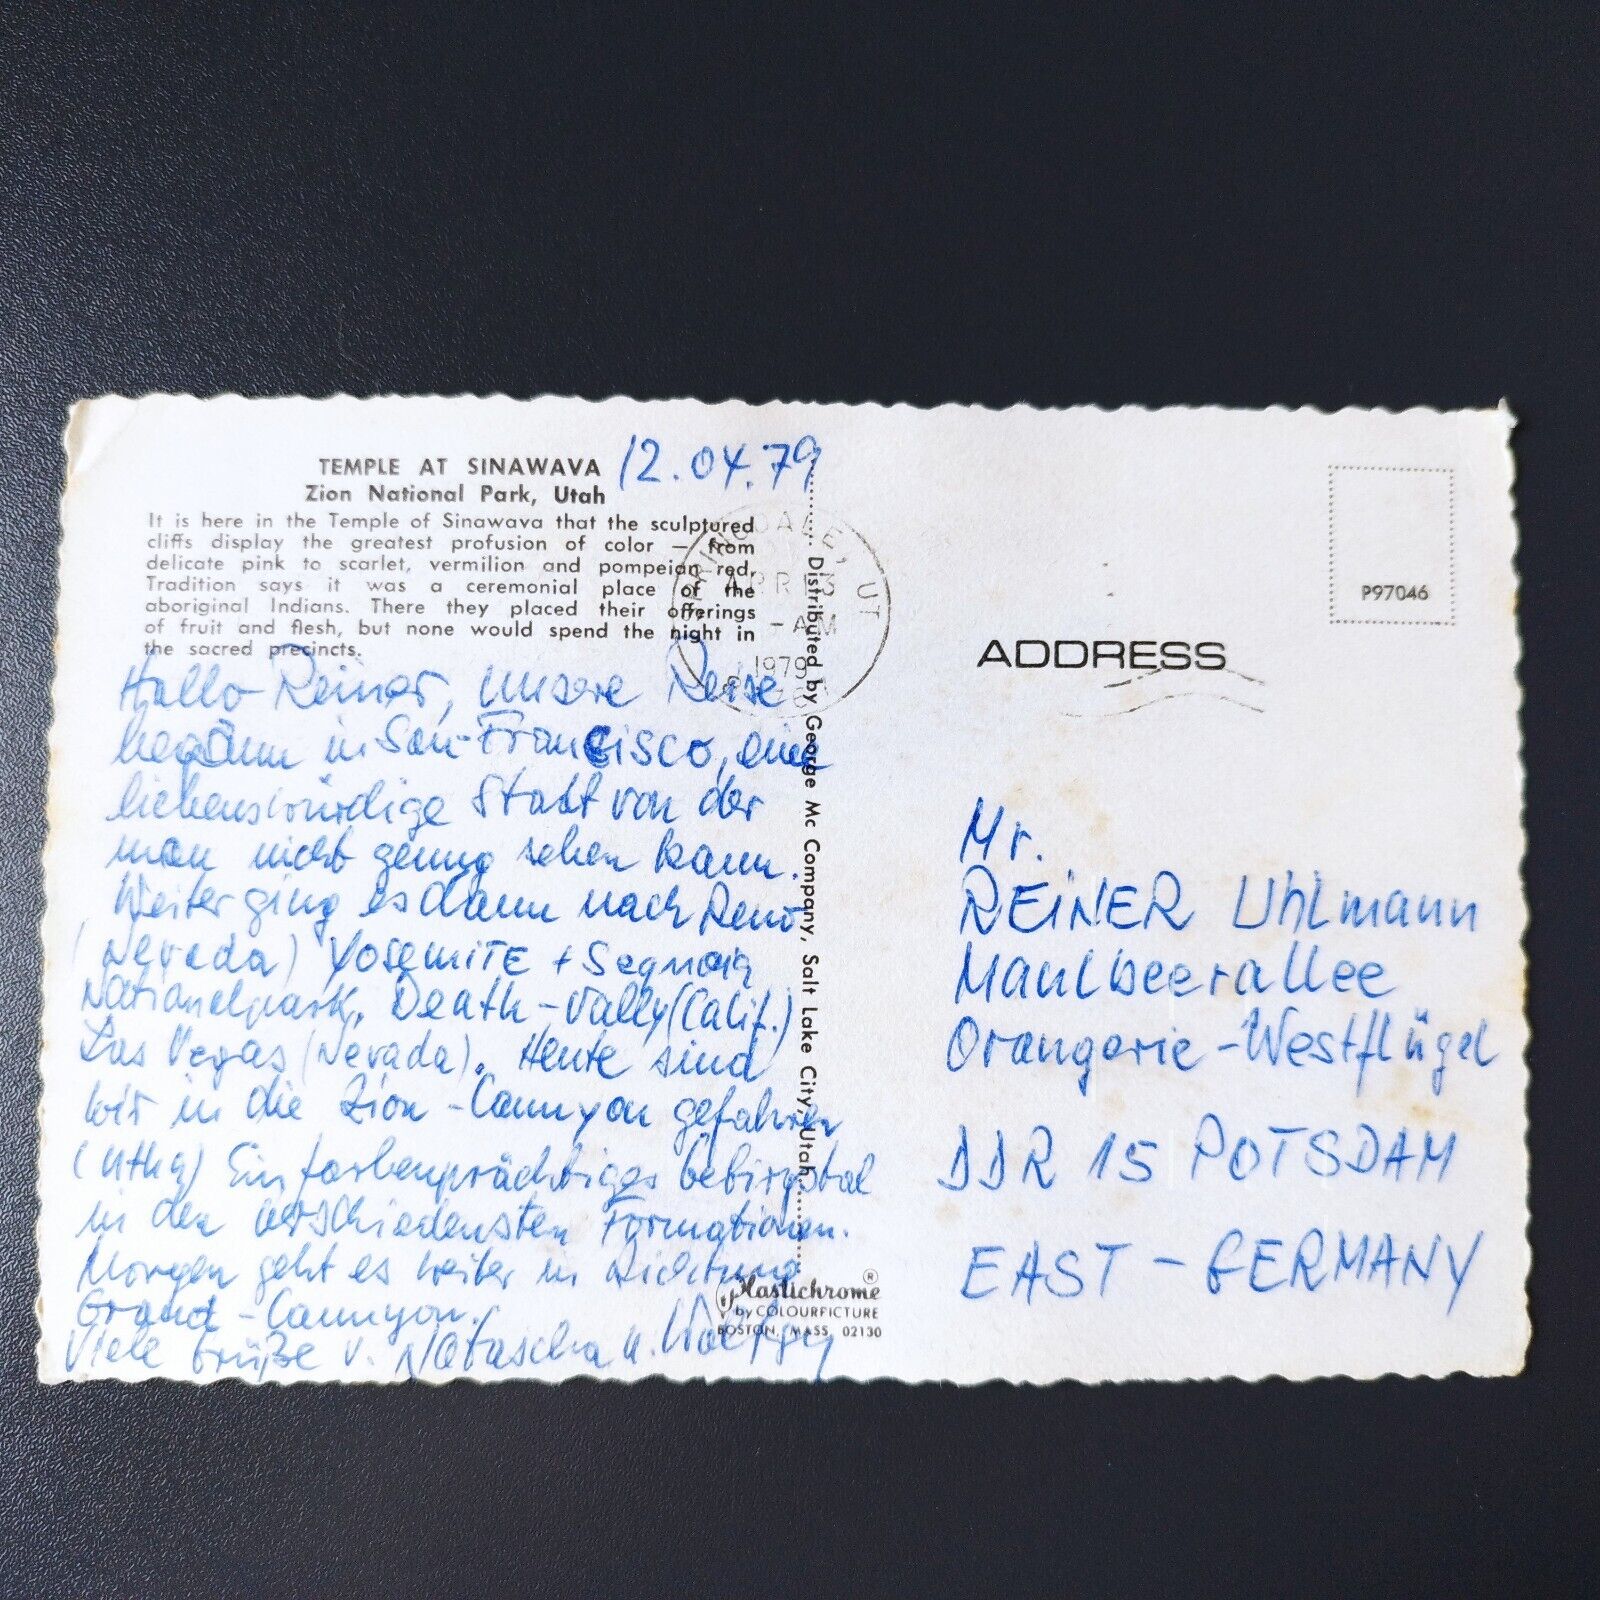 TEMPLE AT SINAWAVA
Zion National Park, Utah
12.04.79
It is here in the Temple of Sinawava that the sculptured
cliffs display the greatest profusion of color — from
delicate pink to scarlet, vermilion and pompeian red.
Tradition says it was a ceremonial place of the
aboriginal Indians. There they placed their offerings
of fruit and flesh, but none would spend the night in
the sacred precincts.
SPRINGDALE, UT
APR 13
AM
1979
Hallo Reiner, unsere Reise
begann in San-Francisco, eine
liebenswürdige Stadt von der
man nicht genug sehen kann.
Weiter ging es dann nach Reno
(Nevada) YOSEMITE + Sequoia
Nationalpark, Death-Vally (Calif.)
Las Vegas (Nevada). Heute sind
wir in die Zion-Cannyon gefahren
(Utha) Ein farbenprächtiges Gebirgstal
in den verschiedensten Formationen.
Morgen geht es weiter in Richtung
Grand-Cannyon.
Viele Grüße v. Natascha u.
Distributed by George Mc Company, Salt Lake City, Utah
Plastichrome ®
by COLOURPICTURE
BOSTON, MASS. 02130
P97046
ADDRESS
Mr.
REINER Uhlmann
Maulbeerallee
Orangerie-Westflügel
DDR 15 POTSDAM
EAST-GERMANY